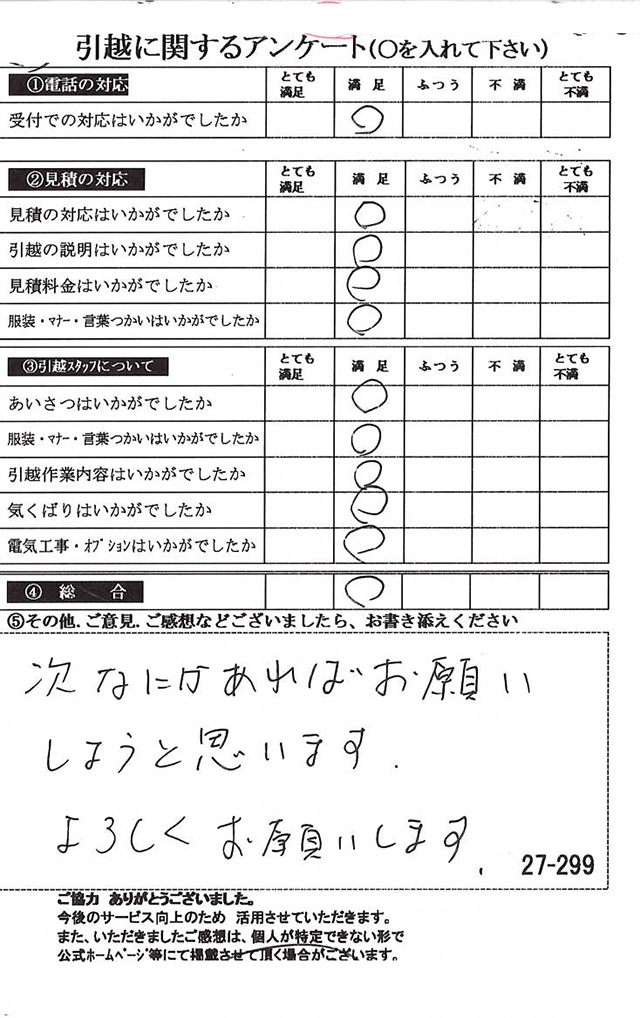 引越に関するアンケート(〇を入れて下さい)
①電話の対応 とても満足 満足 ふつう 不満 とても不満
受付での対応はいかがでしたか 〇
②見積の対応 とても満足 満足 ふつう 不満 とても不満
見積の対応はいかがでしたか 〇
引越の説明はいかがでしたか 〇
見積料金はいかがでしたか 〇
服装・マナー・言葉つかいはいかがでしたか 〇
③引越スタッフについて とても満足 満足 ふつう 不満 とても不満
あいさつはいかがでしたか 〇
服装・マナー・言葉つかいはいかがでしたか 〇
引越作業内容はいかがでしたか 〇
気くばりはいかがでしたか 〇
電気工事・オプションはいかがでしたか 〇
④ 総 合 〇
⑤その他.ご意見.ご感想などございましたら、お書き添えください
次なにかあればお願い
しようと思います.
よろしくお願いします.
27-299
ご協力 ありがとうございました。
今後のサービス向上のため 活用させていただきます。
また、いただきましたご感想は、個人が特定できない形で
公式ホームページ等にて掲載させて頂く場合がございます。